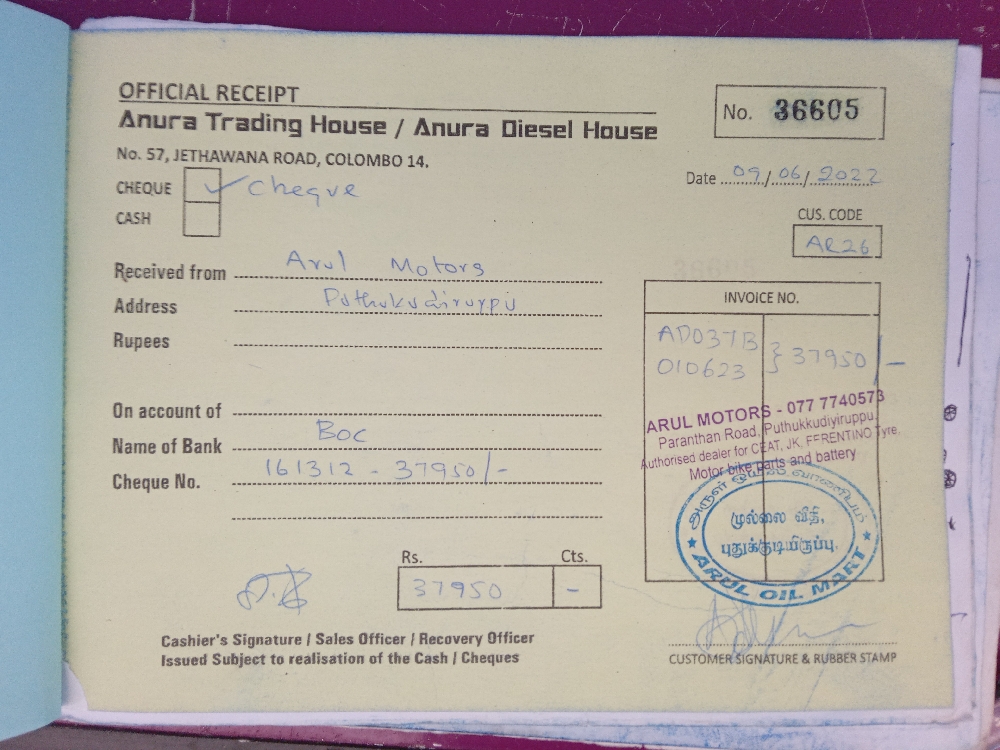 OFFICIAL RECEIPT
Anura Trading House / Anura Diesel House
No. 57, JETHAWANA ROAD, COLOMBO 14.
No. 36605
CHEQUE ✓ Cheque
CASH
Date 09/06/2022
CUS. CODE
AR26
Received from Arul Motors
Address Puthukudiruyppu
Rupees
On account of
Name of Bank BOC
Cheque No. 161312 - 37950/-
INVOICE NO.
AD037B
010623 } 37950/-
ARUL MOTORS - 077 7740573
Paranthan Road, Puthukkudiyiruppu.
Authorised dealer for CEAT, JK, FERENTINO Tyre,
Motor bike parts and battery
அருள் ஒயில் வாணிபம்
முல்லை வீதி,
புதுக்குடியிருப்பு.
★ ARUL OIL MART ★
Rs. Cts.
37950 -
Cashier's Signature / Sales Officer / Recovery Officer
Issued Subject to realisation of the Cash / Cheques
CUSTOMER SIGNATURE & RUBBER STAMP